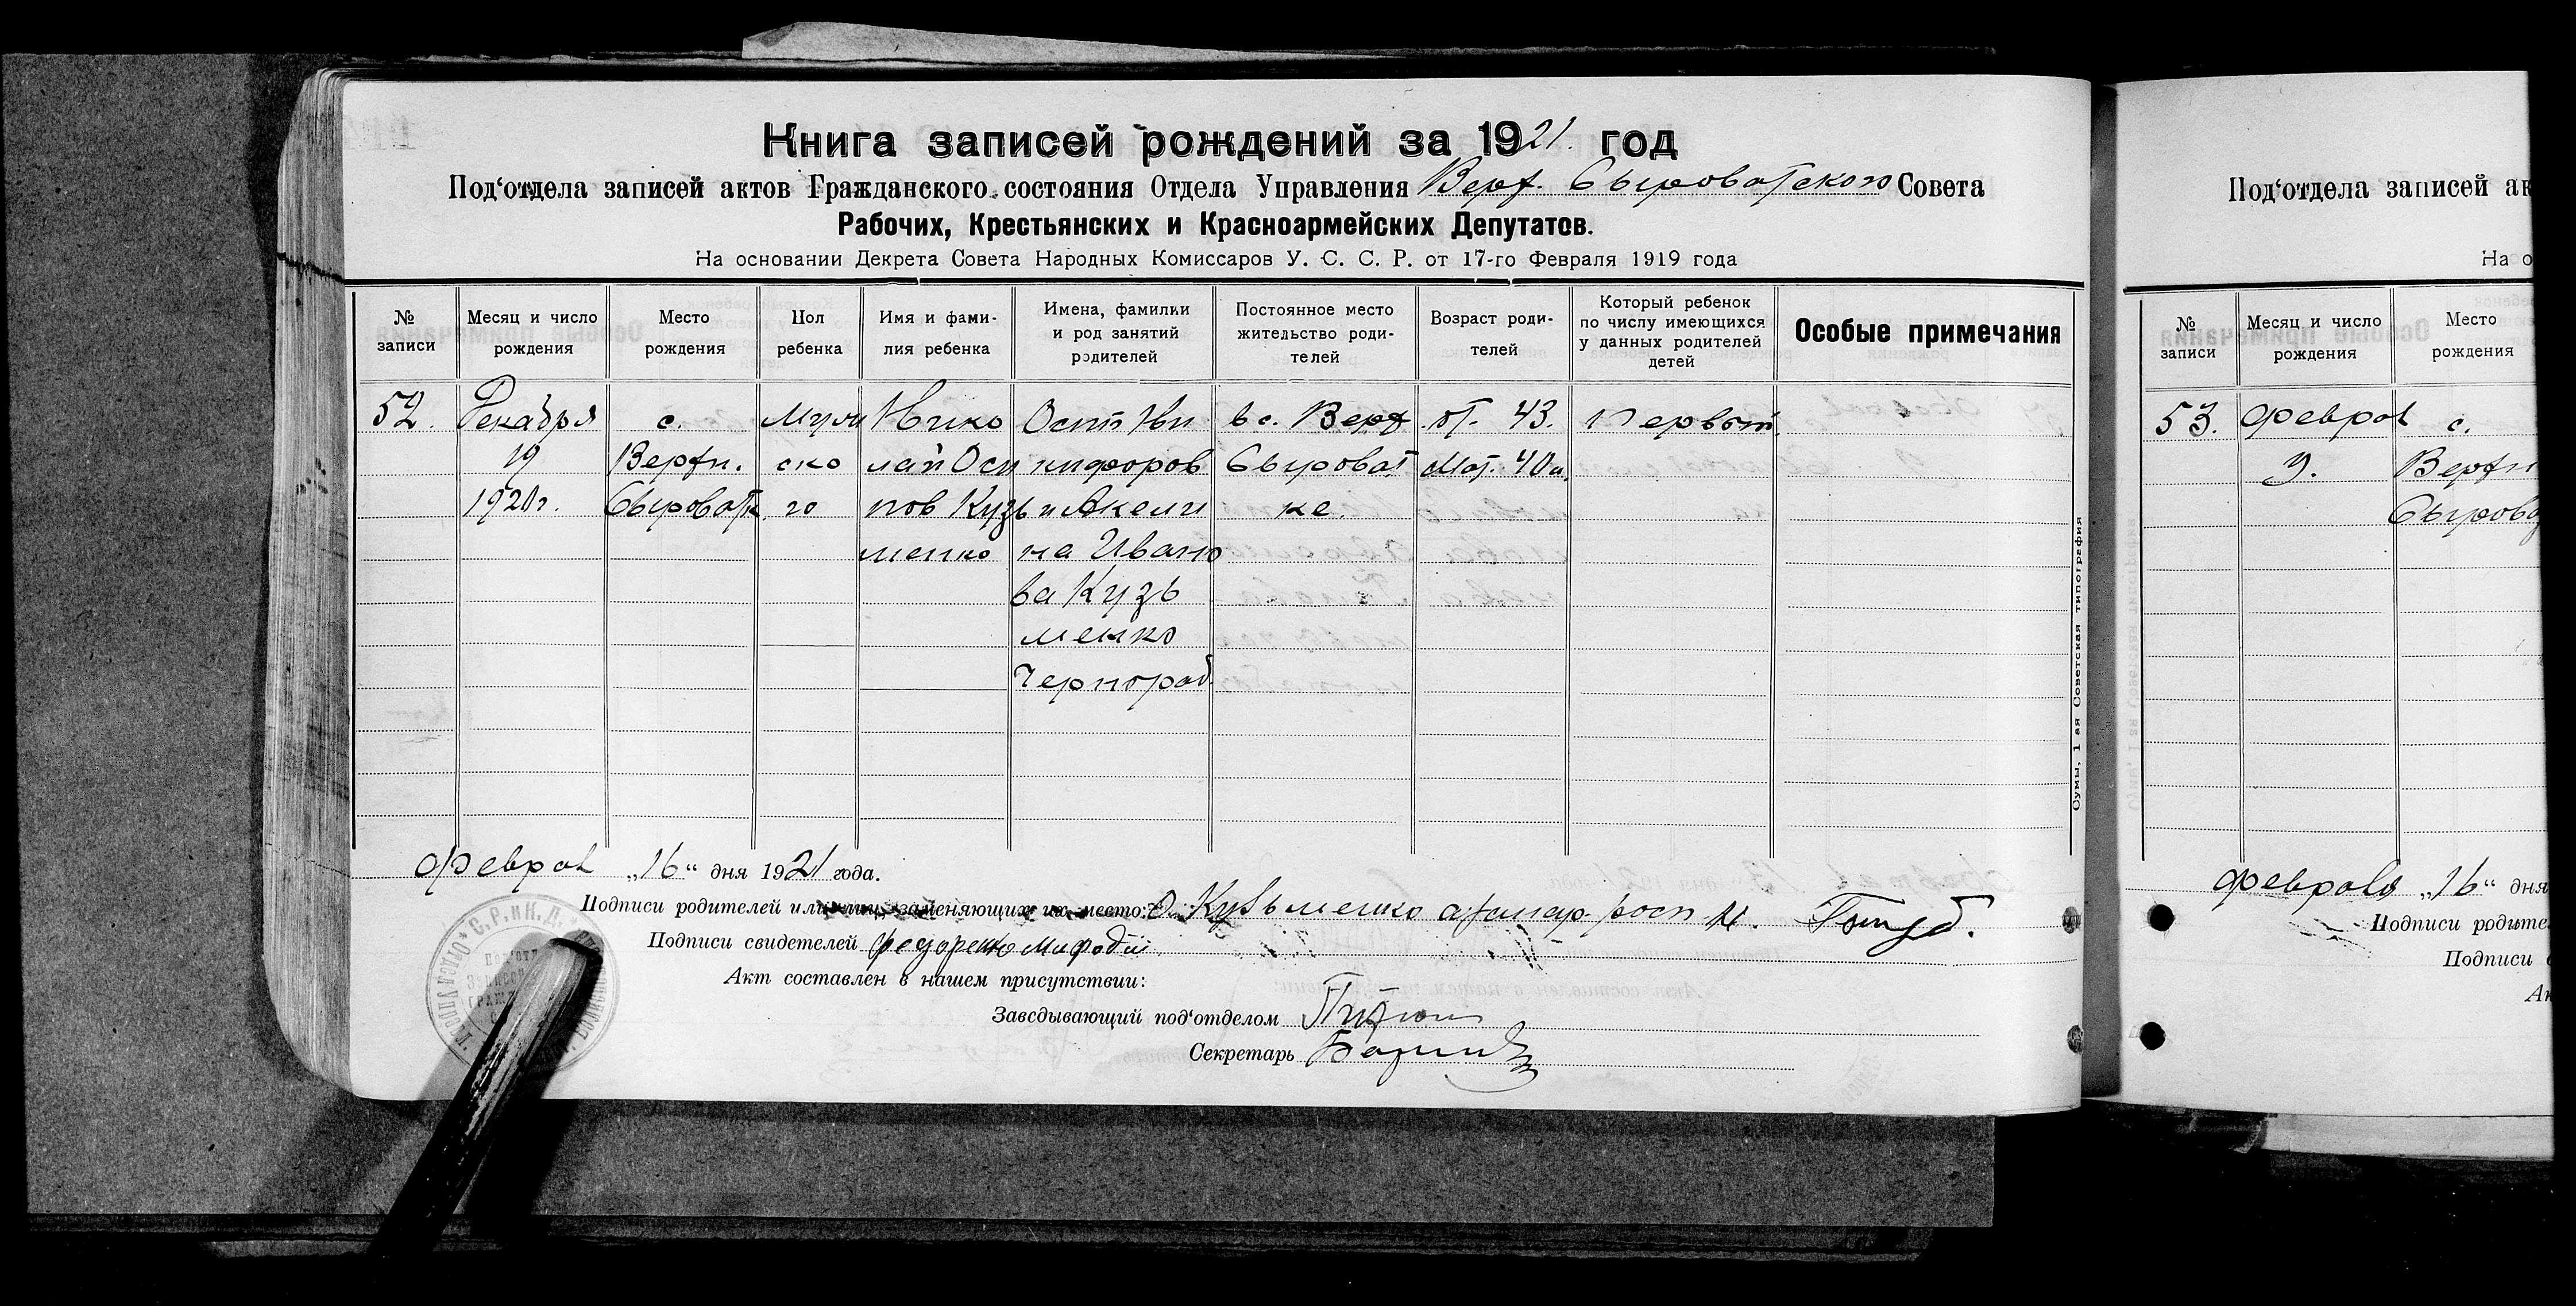 Книга записей рождений за 1921. год
Под'отдела записей актов Гражданского состояния Отдела Управления Верх. Сыроватского Совета
Рабочих, Крестьянских и Красноармейских Депутатов.
На основании Декрета Совета Народных Комиссаров У. С. С. Р. от 17-го Февраля 1919 года
№ записи
Месяц и число рождения
Место рождения
Пол ребенка
Имя и фами-
лия ребенка
Имена, фамилки
и род занятий
родителей
Постоянное место
жительство роди-
телей
Возраст роди-
телей
Который ребенок
по числу имеющихся
у данных родителей
детей
Особые примечания
52.
Декабря
19
1920г.
с.
Верхн.
Сыроватк.
Мужи
ско
го
Нико
лай Оси
пов Кузь
менко
Осип Ни
кифоров
и Акели
на Ивано
ва Кузь
менко
Чернораб.
в с. Верх
Сыроват
ке.
от. 43.
Мат. 40л.
Первый.
Феврал „16“ дня 1921 года.
Подписи родителей или лиц, заменяющих их место: О. Кузьменко
Подписи свидетелей Федоренко Мифодий
Акт составлен в нашем присутствии:
Заведывающий под'отделом
Секретарь
Сумы, 1 ая Советская типография
Под'отдела записей ак
На о
№ записи
Месяц и число
рождения
Место
рождения
53.
Феврал
с.
Верхн
Сырова
Февраля „16“ дня
Подписи родите
Подписи
Ак